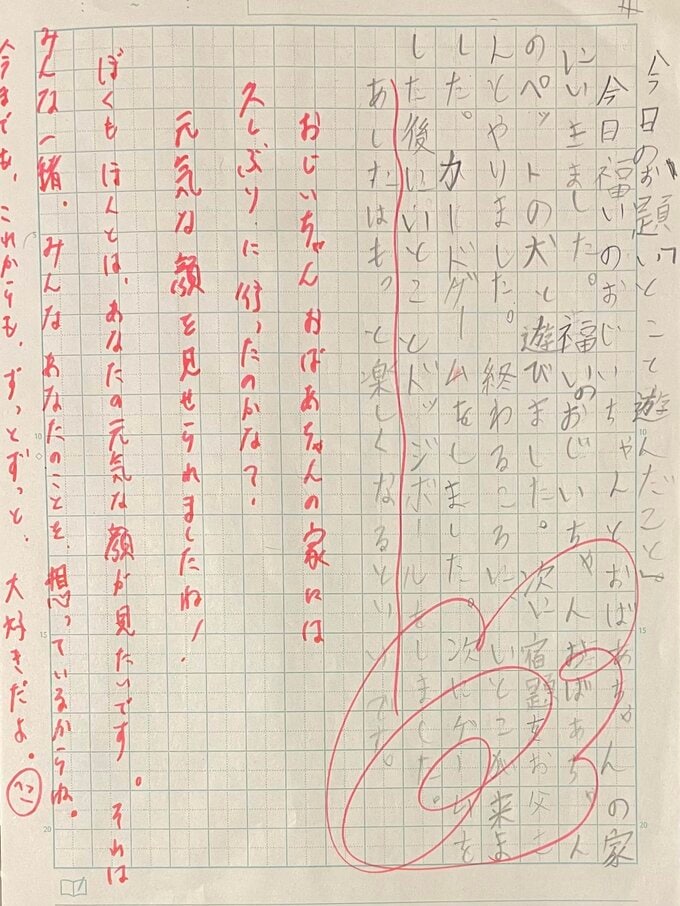 「今日のお題いとこと遊んだこと」
今日福いのおじいちゃんとおばあちゃんの家
にいきました。福いのおじいちゃんおばあちゃん
のペットの犬と遊びました。次に宿題をお父さ
んとやりました。終わるころに、いとこが来ま
した。カードゲームをしました。次にゲームを
した後にいとことドッジボールをしました。
あしたはもっと楽しくなるといいです。
おじいちゃんおばあちゃんの家には
久しぶりに行ったのかなて・
元気な顔を見せられましたね!
ぼくもほんとは、あなたの元気な顔が見たいです。それは
みんな一緒。みんなあなたのことを、想っているからね。
今までも、これからも、ずっとずっと、大好きだよ。